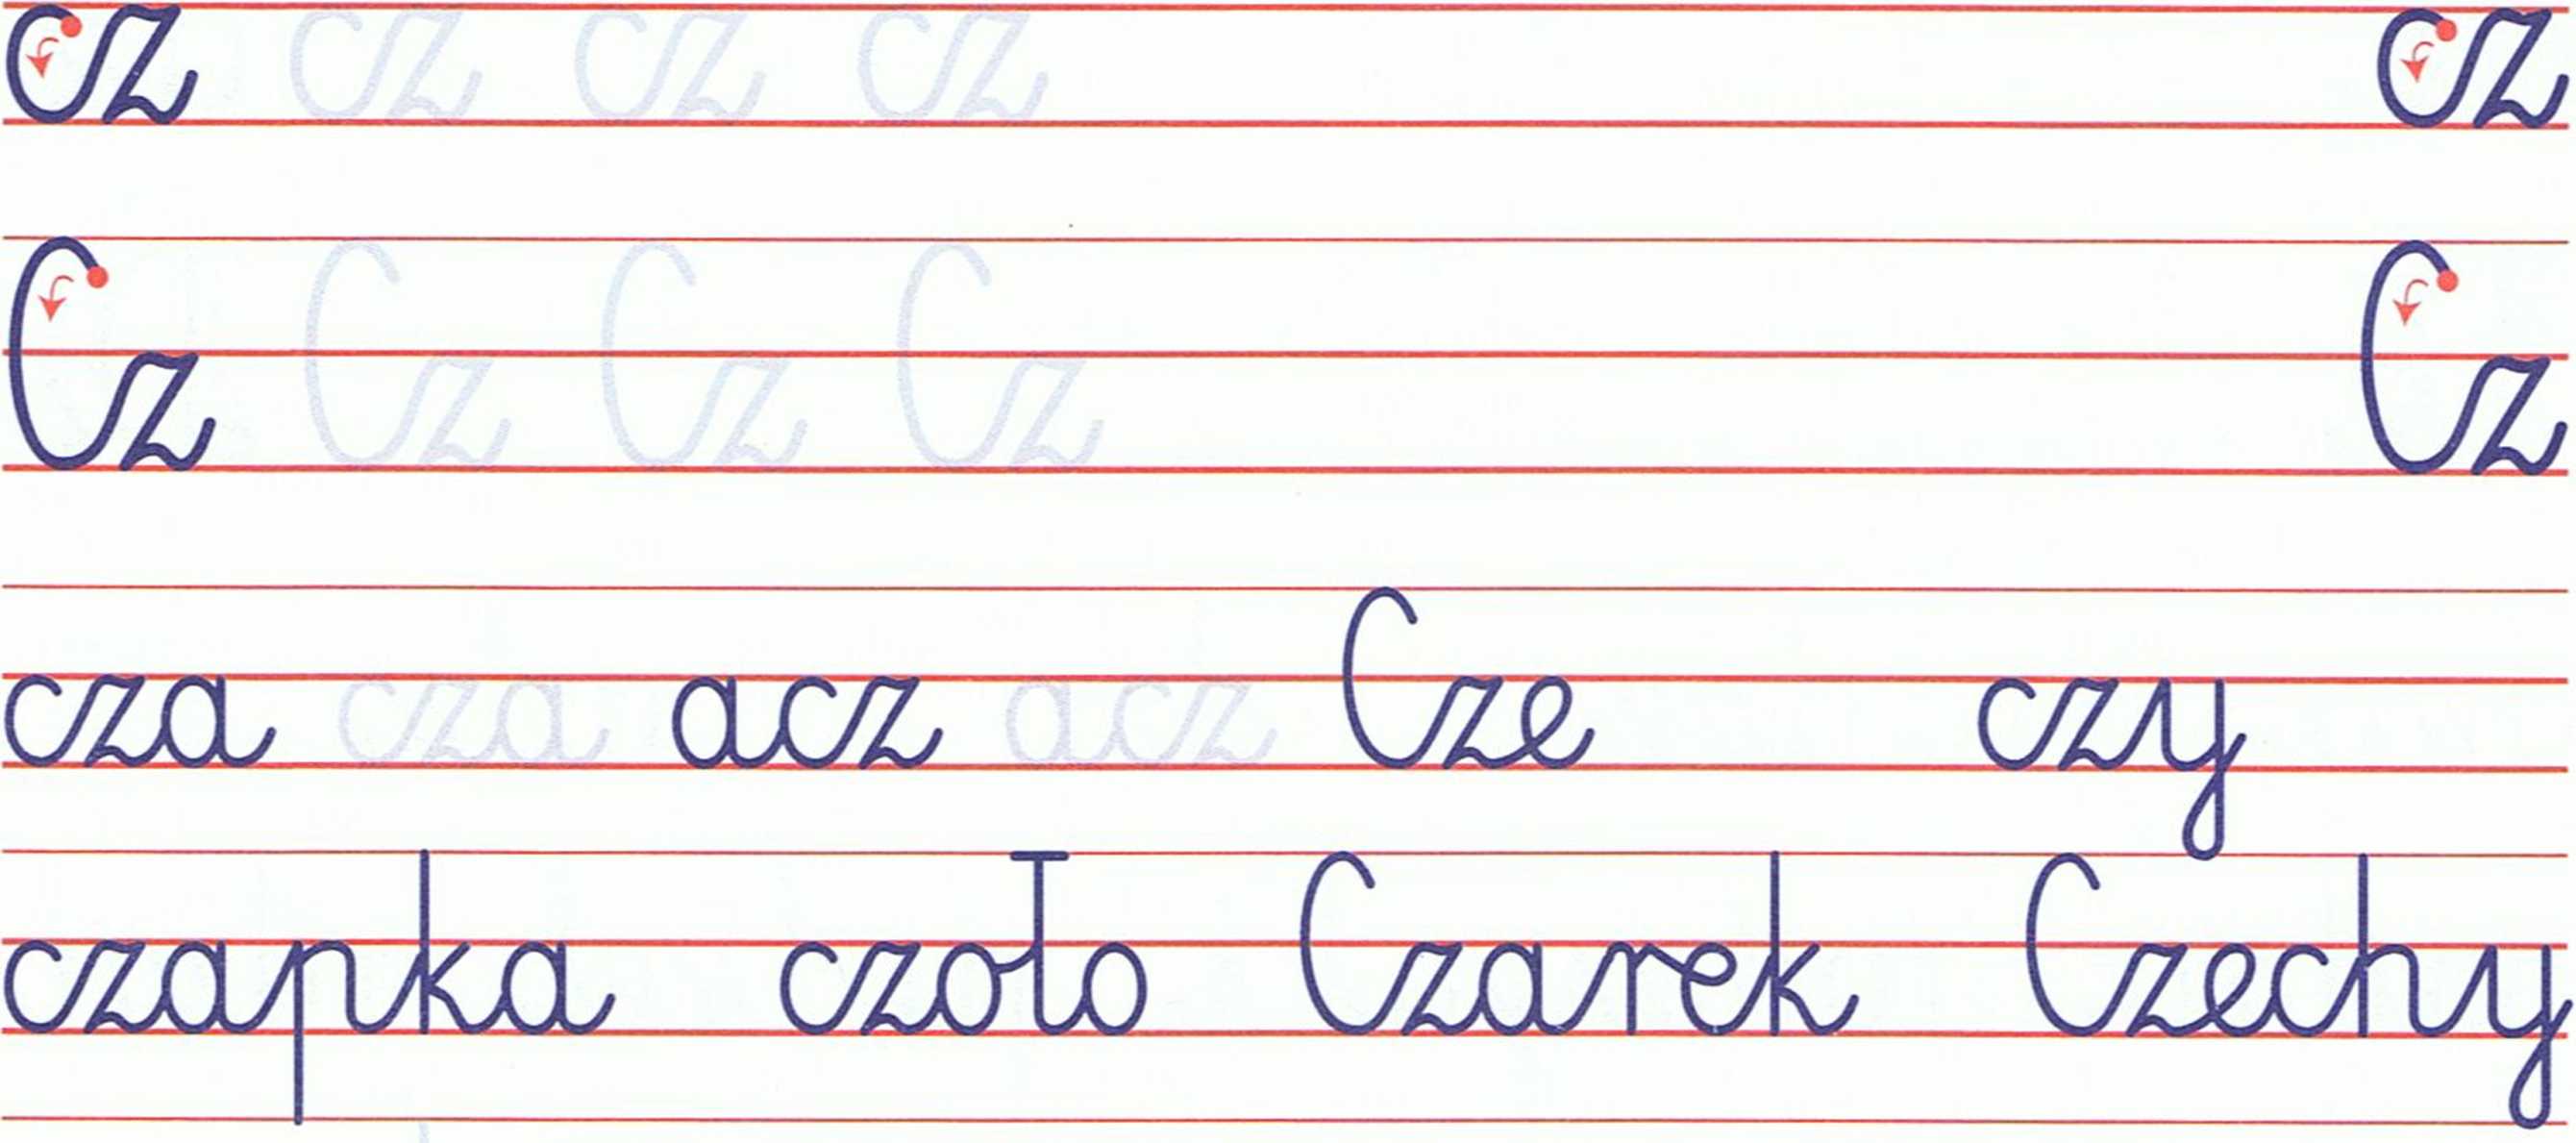 cz cz cz cz cz
Cz Cz Cz Cz Cz
cza cza acz acz Cze czy
czapka czoło Czarek Czechy